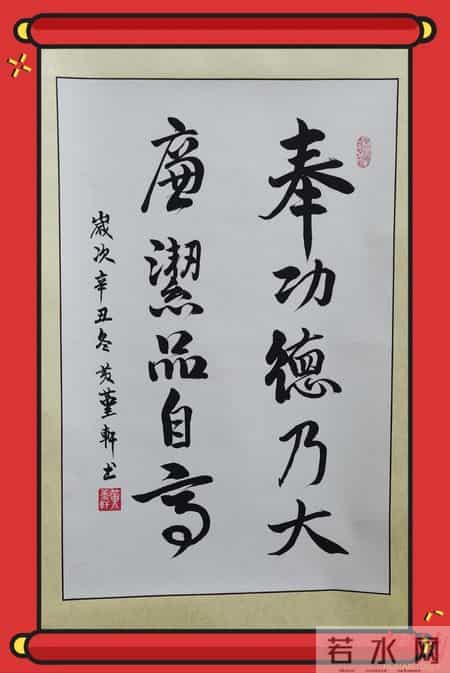 奉功德乃大
廉潔品自高
歲次辛丑冬黄堇軒书
若水网